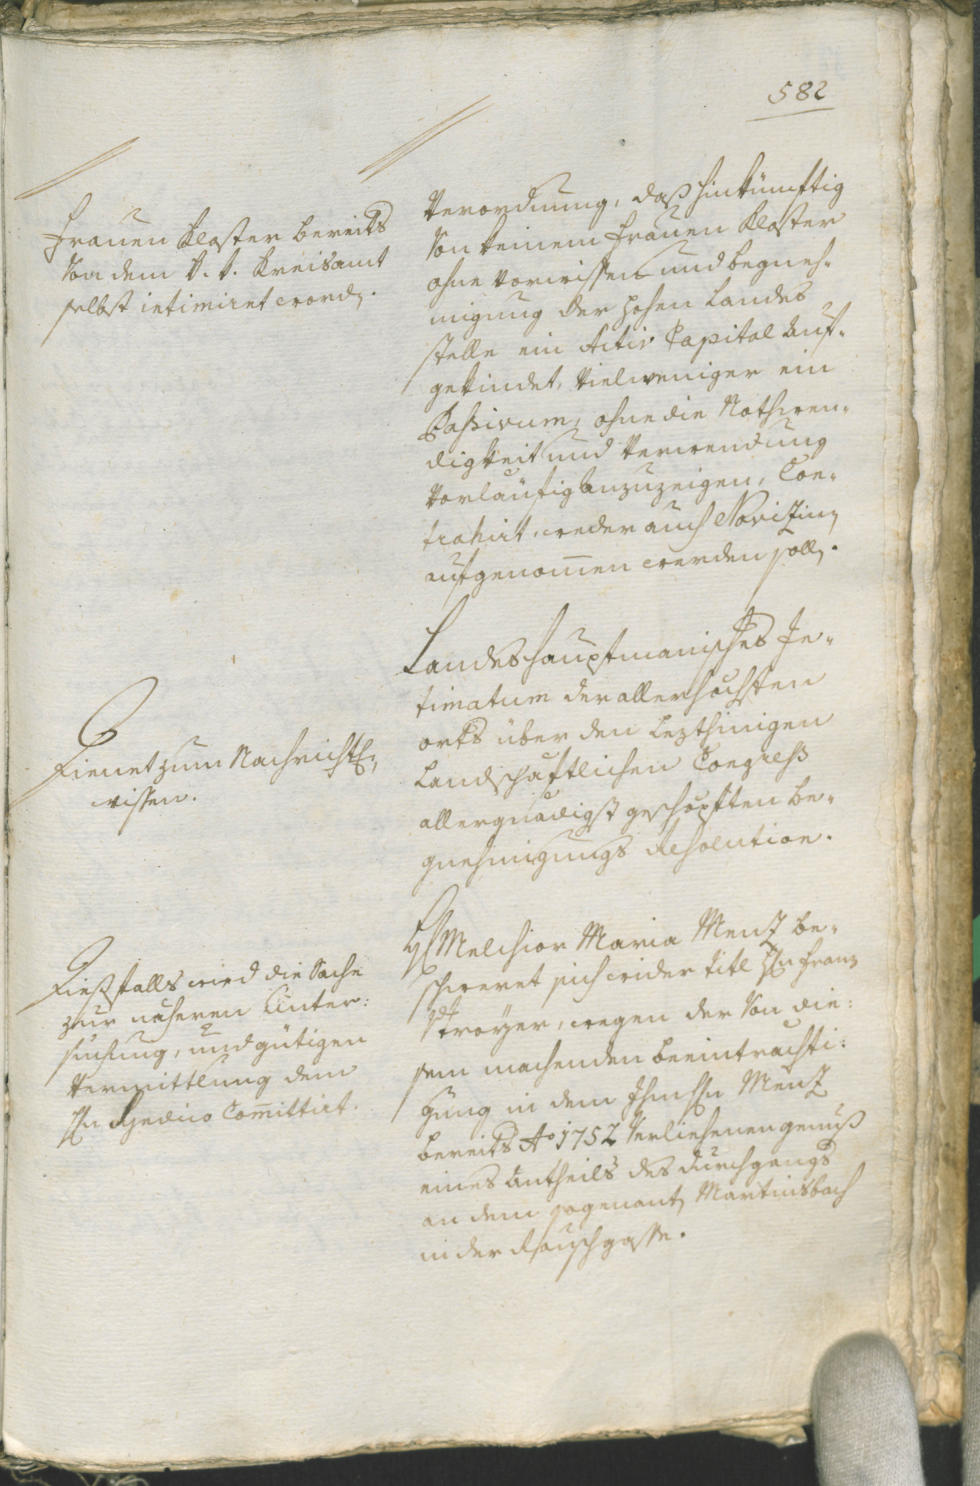 582
Frauen Kloster bereits
von dem K. K. Kreisamt
selbst intimiret word.
Verordnung, daß hinkünftig
von keinem Frauen Kloster
ohne vorwissen und begneh-
migung der hohen Landes
stelle ein Activ Capital auf-
gekündet, vielweniger ein
Passivum, ohne die Nothwen-
digkeit und verwendung
vorläufig anzuzeigen, Con-
trahirt, weder auch Novizin
aufgenommen werden soll.
Dienet zum Nachrichtl.
wissen.
Landeshauptmanisches In-
timatum der allerhöchsten
orts über den letzthinigen
Landschaftlichen Congreß
allergnädigst geschöpften be-
gnehmigungs Resolution.
Diesfalls wird die Sache
zur näheren Unter-
suchung, und gütigen
vermittlung dem
Hn Syndico Committirt.
H Melchior Maria Menz be-
schweret sich wider titl Hn Franz
v Troyer, wegen der von die-
sem machenden beeinträchti-
gung in dem Ihme Hn Menz
bereits Ao 1752 verliehenen genuß
eines Antheils des durchgangs
an dem sogenant Martinsbach
in der Rauschgasse.